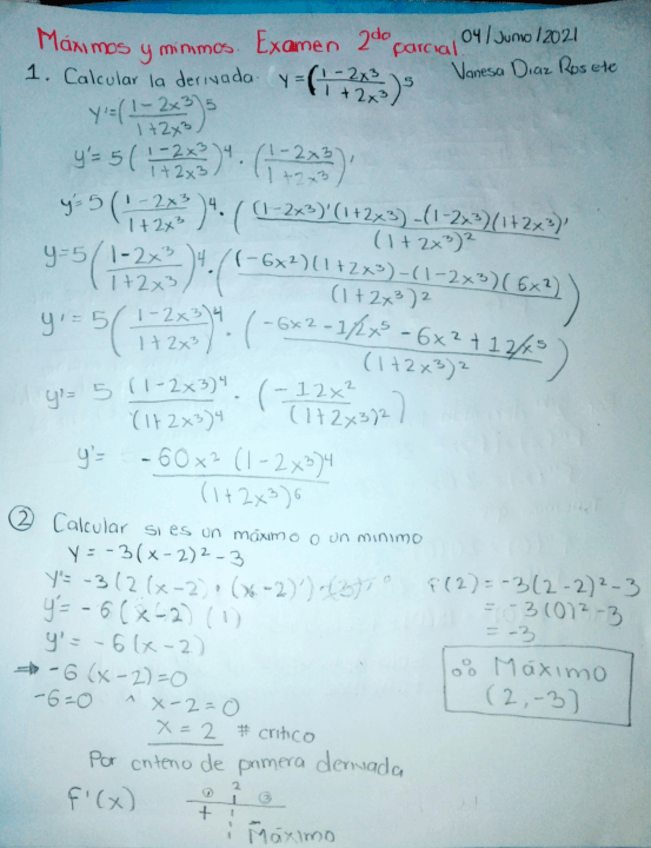 Máximos y mínimos. Examen 2do parcial 04/Junio/2021
Vanesa Diaz Rosete
1. Calcular la derivada. y=((1-2x³)/(1+2x³))⁵
y'=((1-2x³)/(1+2x³))⁵
y'= 5((1-2x³)/(1+2x³))⁴ · ((1-2x³)/(1+2x³))'
y'= 5((1-2x³)/(1+2x³))⁴ · (((1-2x³)'(1+2x³)-(1-2x³)(1+2x³)')/(1+2x³)²)
y=5((1-2x³)/(1+2x³))⁴ · (((-6x²)(1+2x³)-(1-2x³)(6x²))/(1+2x³)²)
y'= 5((1-2x³)/(1+2x³))⁴ · ((-6x²-12x⁵-6x²+12x⁵)/(1+2x³)²)
y'= 5 (1-2x³)⁴/(1+2x³)⁴ · (-12x²/(1+2x³)²)
y'= -60x² (1-2x³)⁴/(1+2x³)⁶
② Calcular si es un máximo o un minimo
y = -3(x-2)²-3
y'= -3(2(x-2) · (x-2)')-(3)'
y'= -6(x-2)(1)
y' = -6(x-2)
⇒ -6(x-2)=0
-6=0 ^ x-2=0
x = 2 # critico
f(2) = -3(2-2)²-3
= -3(0)²-3
= -3
∴ Máximo
(2,-3)
Por criterio de primera derivada
f'(x)
2
+ -
Máximo